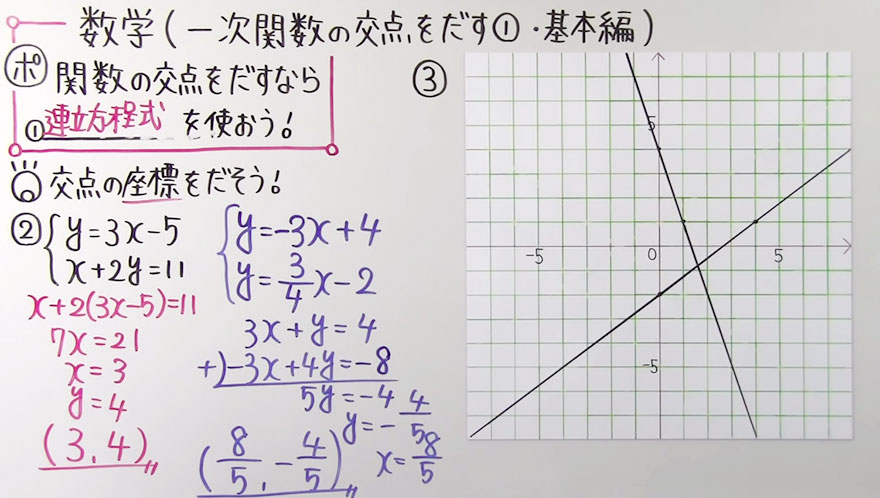 数学(一次関数の交点をだす①・基本編)
ポ 関数の交点をだすなら
①連立方程式 を使おう!
交点の座標をだそう!
② y=3x-5
x+2y=11
x+2(3x-5)=11
7x=21
x=3
y=4
(3,4)
y=-3x+4
y=3/4x-2
3x+y=4
+)-3x+4y=-8
5y=-4
y=-4/5
x=8/5
(8/5,-4/5)
③
5
-5 0 5
-5